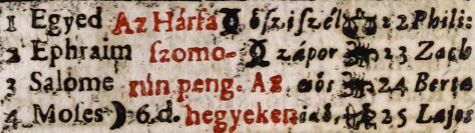 1 Egyed Az Hárfa ősz. i szél 22 Phili:
2 Ephraim ſzomo- zápor 23 Zach
3 Salome rún peng. Az 24 Berta
4 Moſes ☽ 6. d. hegyeken 25 Lajos